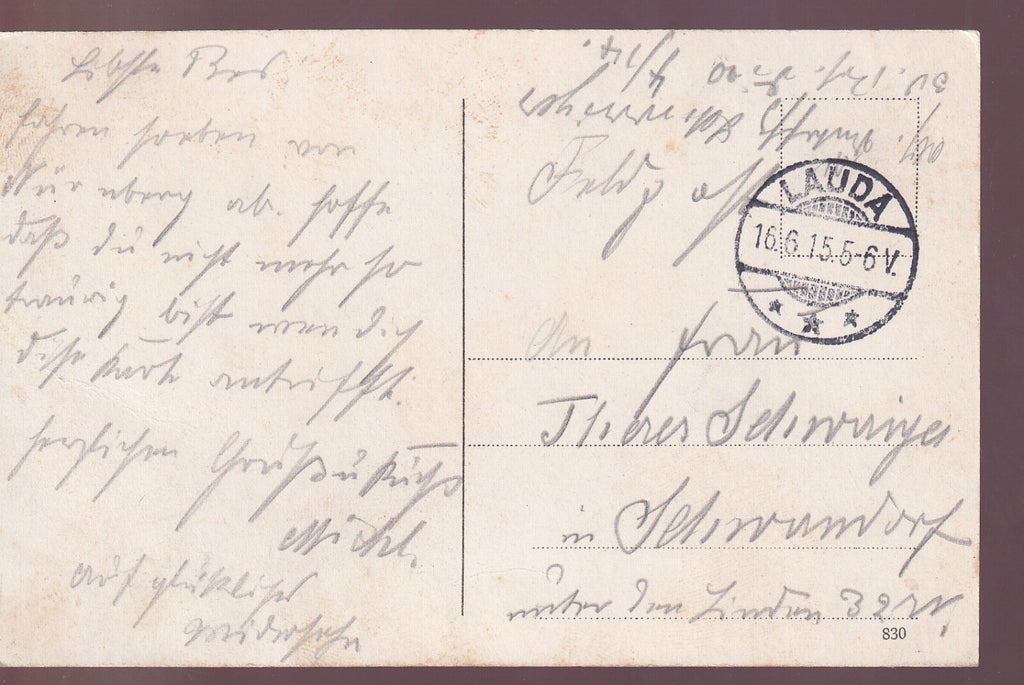 Liebste Res
fahren soeben von
Nürnberg ab. hoffe
daß du nicht mehr so
traurig bist wen dich
diese Karte antrifft.
herzlichen Gruß u Kuß
Michl.
auf glückliches
Widersehn
Feldpost
LAUDA
16.6.15.5-6V.
An Frau
Theres Schwaiger
in Schwandorf
unter den Linden 32
830